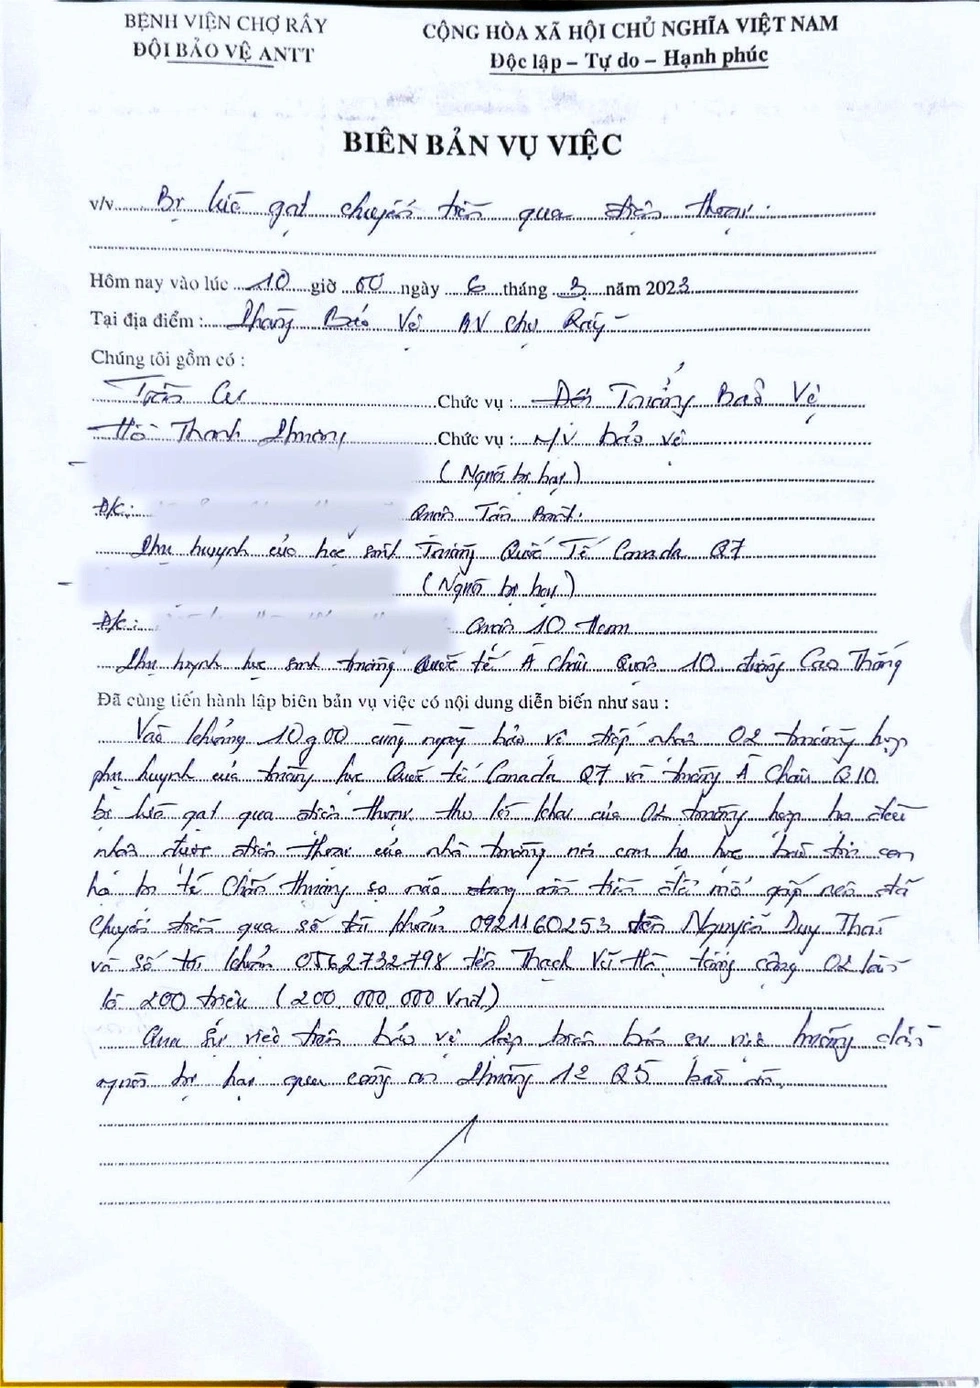 BỆNH VIỆN CHỢ RẪY
ĐỘI BẢO VỆ ANTT
CỘNG HÒA XÃ HỘI CHỦ NGHĨA VIỆT NAM
Độc lập – Tự do – Hạnh phúc
BIÊN BẢN VỤ VIỆC
v/v Bị lừa gạt chuyển tiền qua điện thoại.
Hôm nay vào lúc 10 giờ 00 ngày 6 tháng 3 năm 2023
Tại địa điểm : Phòng Bảo Vệ BV Chợ Rẫy
Chúng tôi gồm có :
Trần Cư Chức vụ : Đội Trưởng Bảo Vệ
Hồ Thanh Phương Chức vụ : N/V bảo vệ
( Người bị hại )
Đ/c: Quận Tân Bình.
Phụ huynh của học sinh Trường Quốc Tế Canada Q7
( Người bị hại )
Đ/c: Quận 10 Hcm
Phụ huynh học sinh trường Quốc tế Á Châu Quận 10 đường Cao Thắng
Đã cùng tiến hành lập biên bản vụ việc có nội dung diễn biến như sau :
Vào khoảng 10g00 cùng ngày bảo vệ tiếp nhận 02 trường hợp
phụ huynh của trường học Quốc tế Canada Q7 và trường Á Châu Q10
bị lừa gạt qua điện thoại theo lời khai của 02 trường hợp họ đều
nhận được điện thoại của nhà trường nói con họ học bán trú con
họ bị té chấn thương sọ não đang cần tiền để mổ gấp nên đã
chuyển tiền qua số tài khoản 0921160253 tên Nguyễn Duy Thái
và số tài khoản 0562732798 tên Thạch Vũ Hà tổng cộng 02 lần
là 200 triệu ( 200.000.000 Vnđ )
Qua sự việc trên bảo vệ lập biên bản sự việc hướng dẫn
người bị hại qua công an Phường 12 Q5 báo án.